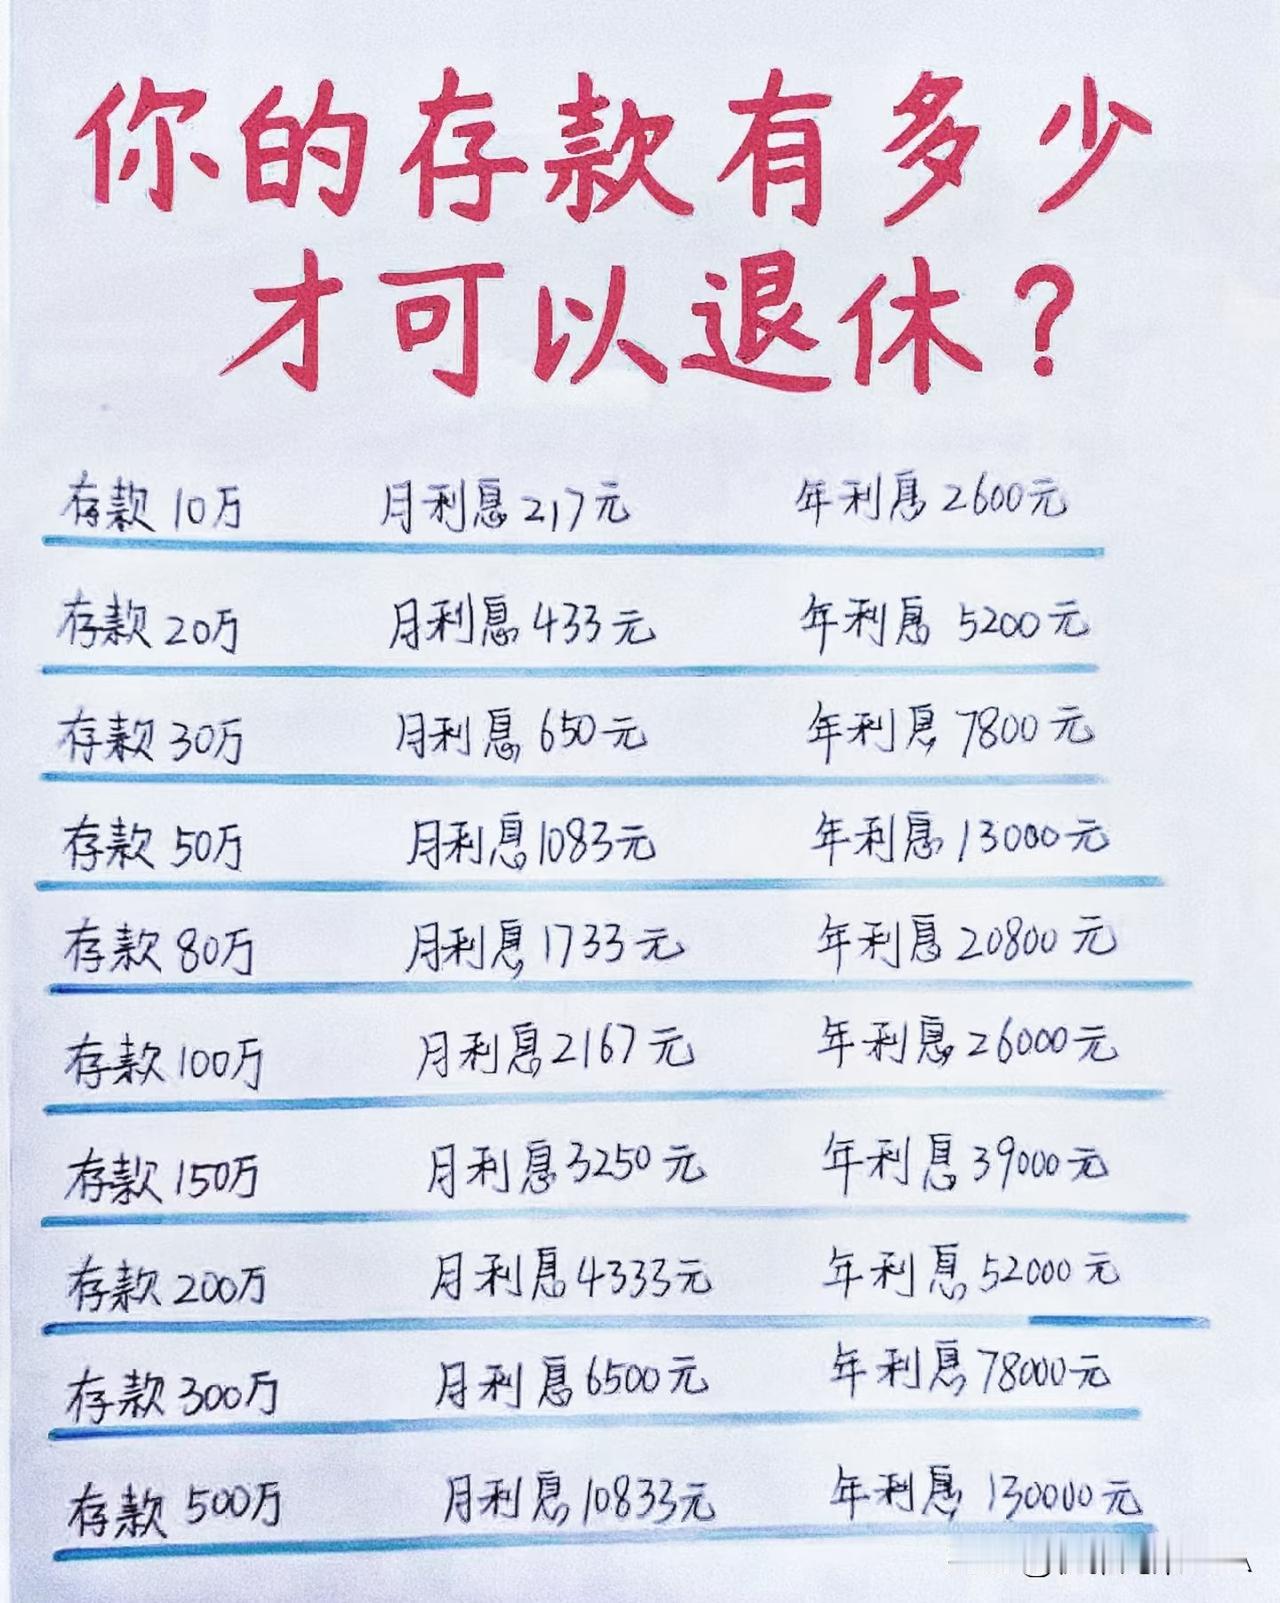 你的存款有多少
才可以退休？
存款10万 月利息217元 年利息2600元
存款20万 月利息433元 年利息5200元
存款30万 月利息650元 年利息7800元
存款50万 月利息1083元 年利息13000元
存款80万 月利息1733元 年利息20800元
存款100万 月利息2167元 年利息26000元
存款150万 月利息3250元 年利息39000元
存款200万 月利息4333元 年利息52000元
存款300万 月利息6500元 年利息78000元
存款500万 月利息10833元 年利息130000元